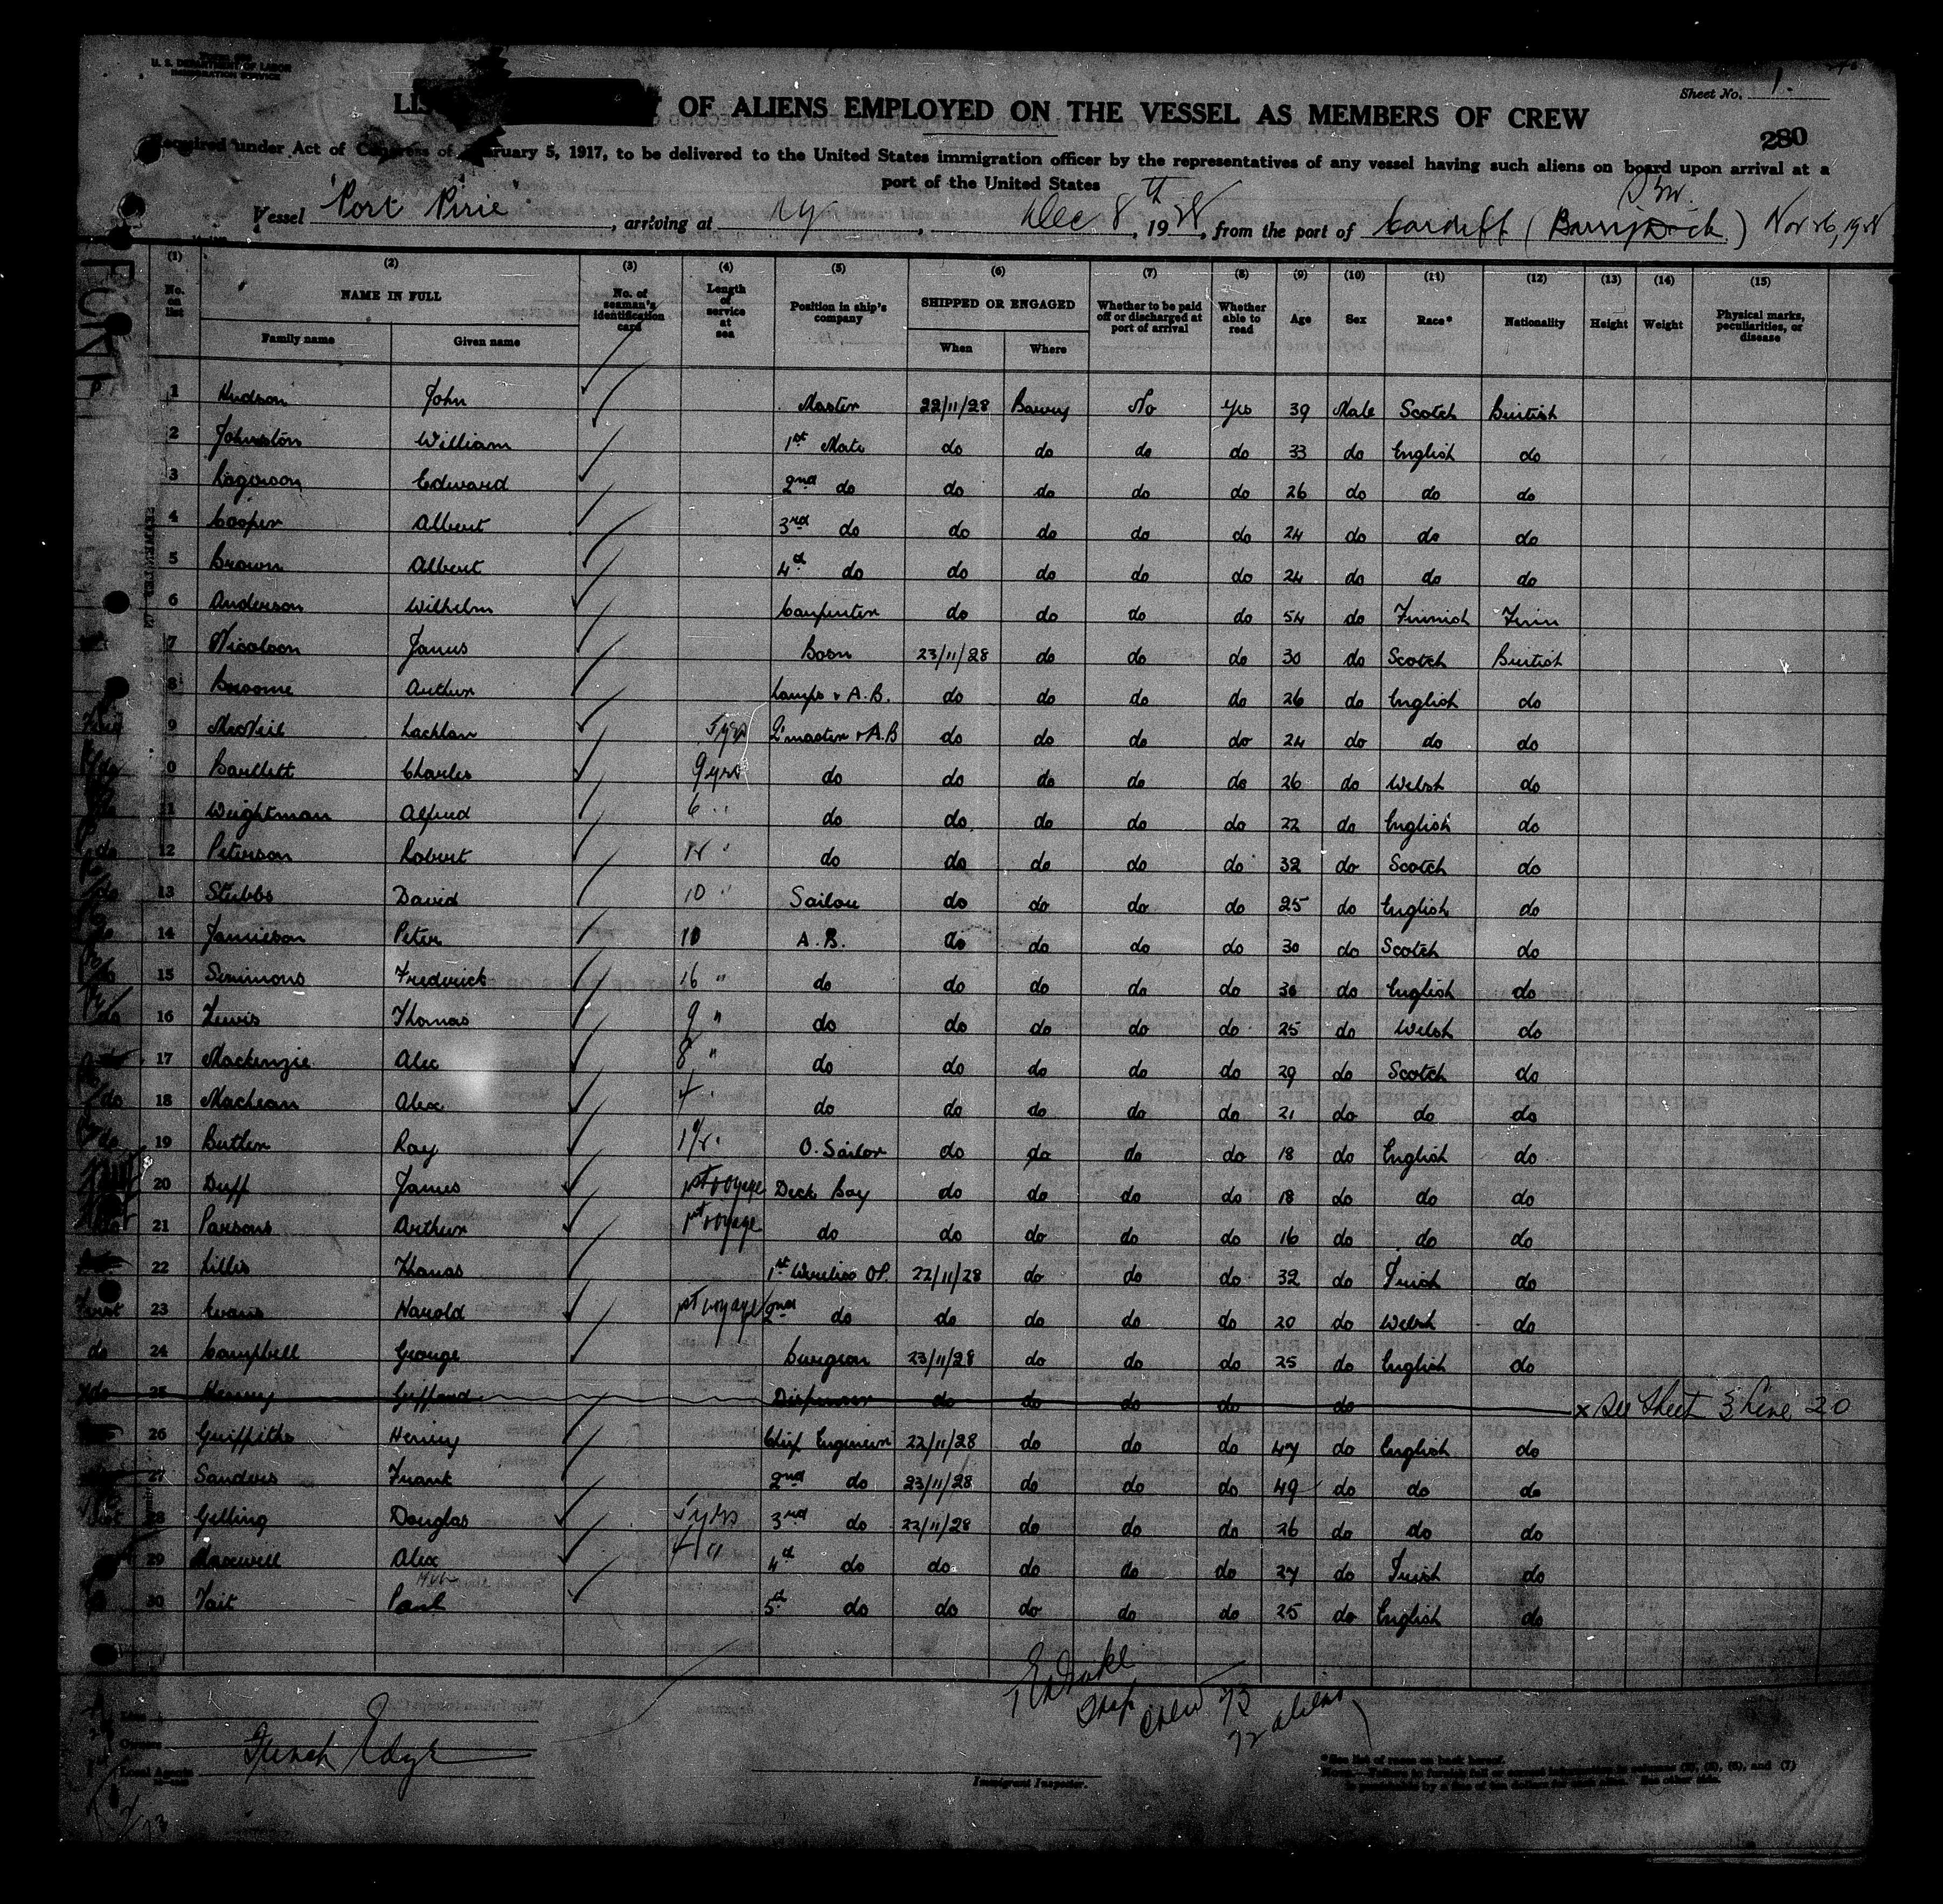 U. S. DEPARTMENT OF LABOR
IMMIGRATION SERVICE
Sheet No. 1.
OF ALIENS EMPLOYED ON THE VESSEL AS MEMBERS OF CREW
280
Required under Act of Congress of February 5, 1917, to be delivered to the United States immigration officer by the representatives of any vessel having such aliens on board upon arrival at a
port of the United States
Vessel "Port Pirie", arriving at NY, Dec 8th, 1928, from the port of Cardiff (Barry Dock) Nov 26, 1928
(1) (2) (3) (4) (5) (6) (7) (8) (9) (10) (11) (12) (13) (14) (15)
No. on list NAME IN FULL No. of seaman's identification card Length of service at sea Position in ship's company SHIPPED OR ENGAGED Whether to be paid off or discharged at port of arrival Whether able to read Age Sex Race* Nationality Height Weight Physical marks, peculiarities, or disease
Family name Given name When Where
1 Hudson John Master 22/11/28 Barry No Yes 39 Male Scotch British
2 Johnston William 1st Mate do do do do 33 do English do
3 Edward 2nd do do do do do 26 do do do
4 Cooper Albert 3rd do do do do do 24 do do do
5 Brown Albert 4th do do do do do 24 do do do
6 Anderson Wilhelm Carpenter do do do do 54 do Finnish Finn
7 Nicolson James Bosn 23/11/28 do do do 30 do Scotch British
8 Broome Arthur Lamps & A.B. do do do do 26 do English do
9 MacNeil Lachlan 5 yrs Q'master & A.B do do do do 24 do do do
10 Bartlett Charles 9 yrs do do do do do 26 do Welsh do
11 Weightman Alfred 6 " do do do do do 22 do English do
12 Peterson Robert do do do do do 32 do Scotch do
13 Stubbs David 10 " Sailor do do do do 25 do English do
14 Jamieson Peter 10 A.B. do do do do 30 do Scotch do
15 Simmons Frederick 16 " do do do do do 30 do English do
16 Lewis Thomas 9 " do do do do do 25 do Welsh do
17 Mackenzie Alec 8 " do do do do do 29 do Scotch do
18 MacLean Alex 4 " do do do do do 21 do do do
19 Butler Ray O. Sailor do do do do 18 do English do
20 Duff James 1st voyage Deck Boy do do do do 18 do do do
21 Parsons Arthur 1st voyage do do do do do 16 do do do
22 Lillis Thomas 1st Wireless OP. 22/11/28 do do do 32 do Irish do
23 Evans Harold 1st voyage 2nd do do do do do 20 do Welsh do
24 Campbell George Surgeon 23/11/28 do do do 25 do English do
25 Henry Gifford Dispenser do do do do do x See Sheet 3 Line 20
26 Griffiths Henry Chief Engineer 22/11/28 do do do 47 do English do
27 Sanders Frank 2nd do 23/11/28 do do do 49 do do do
28 Gelling Douglas 5 yrs 3rd do 22/11/28 do do do 26 do do do
29 Maxwell Alex 4 " 4th do do do do do 27 do Irish do
30 Tait Paul 5th do do do do do 25 do English do
Crew 73
72 aliens
Line
Owners
Local Agents
Immigrant Inspector.
*See list of races on back hereof.
NOTE.—Failure to furnish full or correct information in columns (2), (5), (6), and (7)
is punishable by a fine of ten dollars for each alien. See other side.